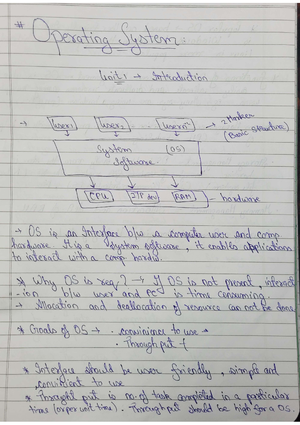 # Operating System
Unit 1 → Introduction
→ User1 User2 Usern → 2 Marker
(Basic structure)
System (OS)
Software
CPU I/O dev RAM - hardware
→ OS is an Interface b/w a computer user and comp
hardware It is a system software, it enables applications
to interact with a comp hardw.
* Why OS is req? → If OS is not present, interact
-ion b/w user and PC is time consuming.
→ Allocation and deallocation of resource can not be done
* Goals of OS → . convinience to use
. Throughput ↑
* Interface should be user friendly, simple and
convinient to use
* Throughput is no. of task completed in a particular
time (or per unit time). Throughput should be high for a OS.